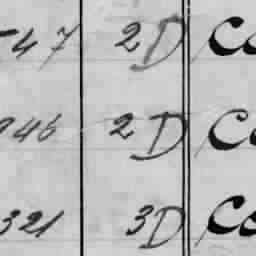 -47 2D Co
946 2D Co
321 3D Co